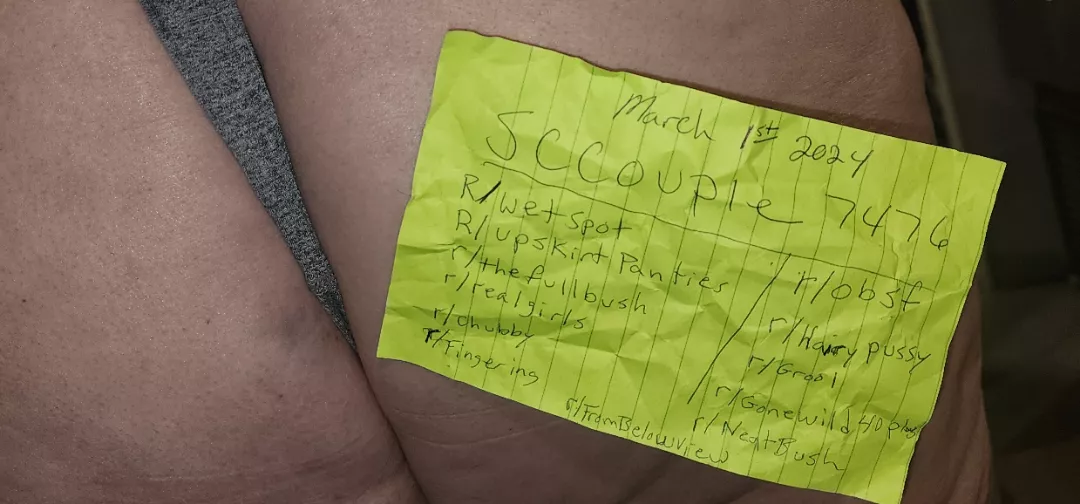 March 1st 2024
JCCouple 7476
R/wetspot
R/upskirt Panties
r/thefullbush
r/realgirls
r/chubby
r/Fingering
r/FromBelowView
r/obsf
r/Hairy pussy
r/Grool
r/Gonewild 40 plus
r/NeatBush